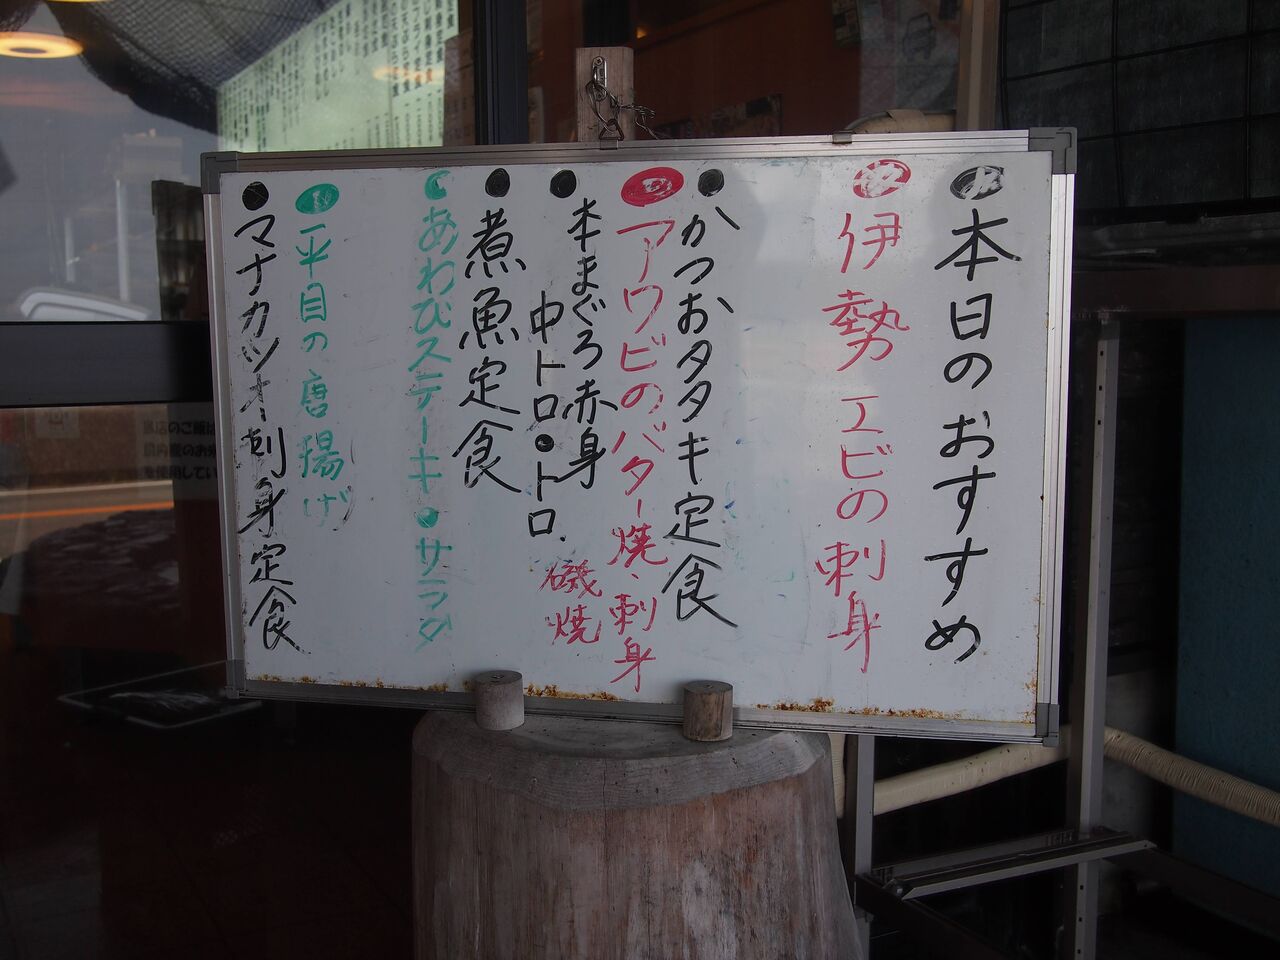 本日のおすすめ
伊勢エビの刺身
かつおタタキ定食
アワビのバター焼、刺身
磯焼
本まぐろ赤身
中トロ・トロ.
煮魚定食
あわびステーキ・サラダ
平目の唐揚げ
マナカツオ刺身定食